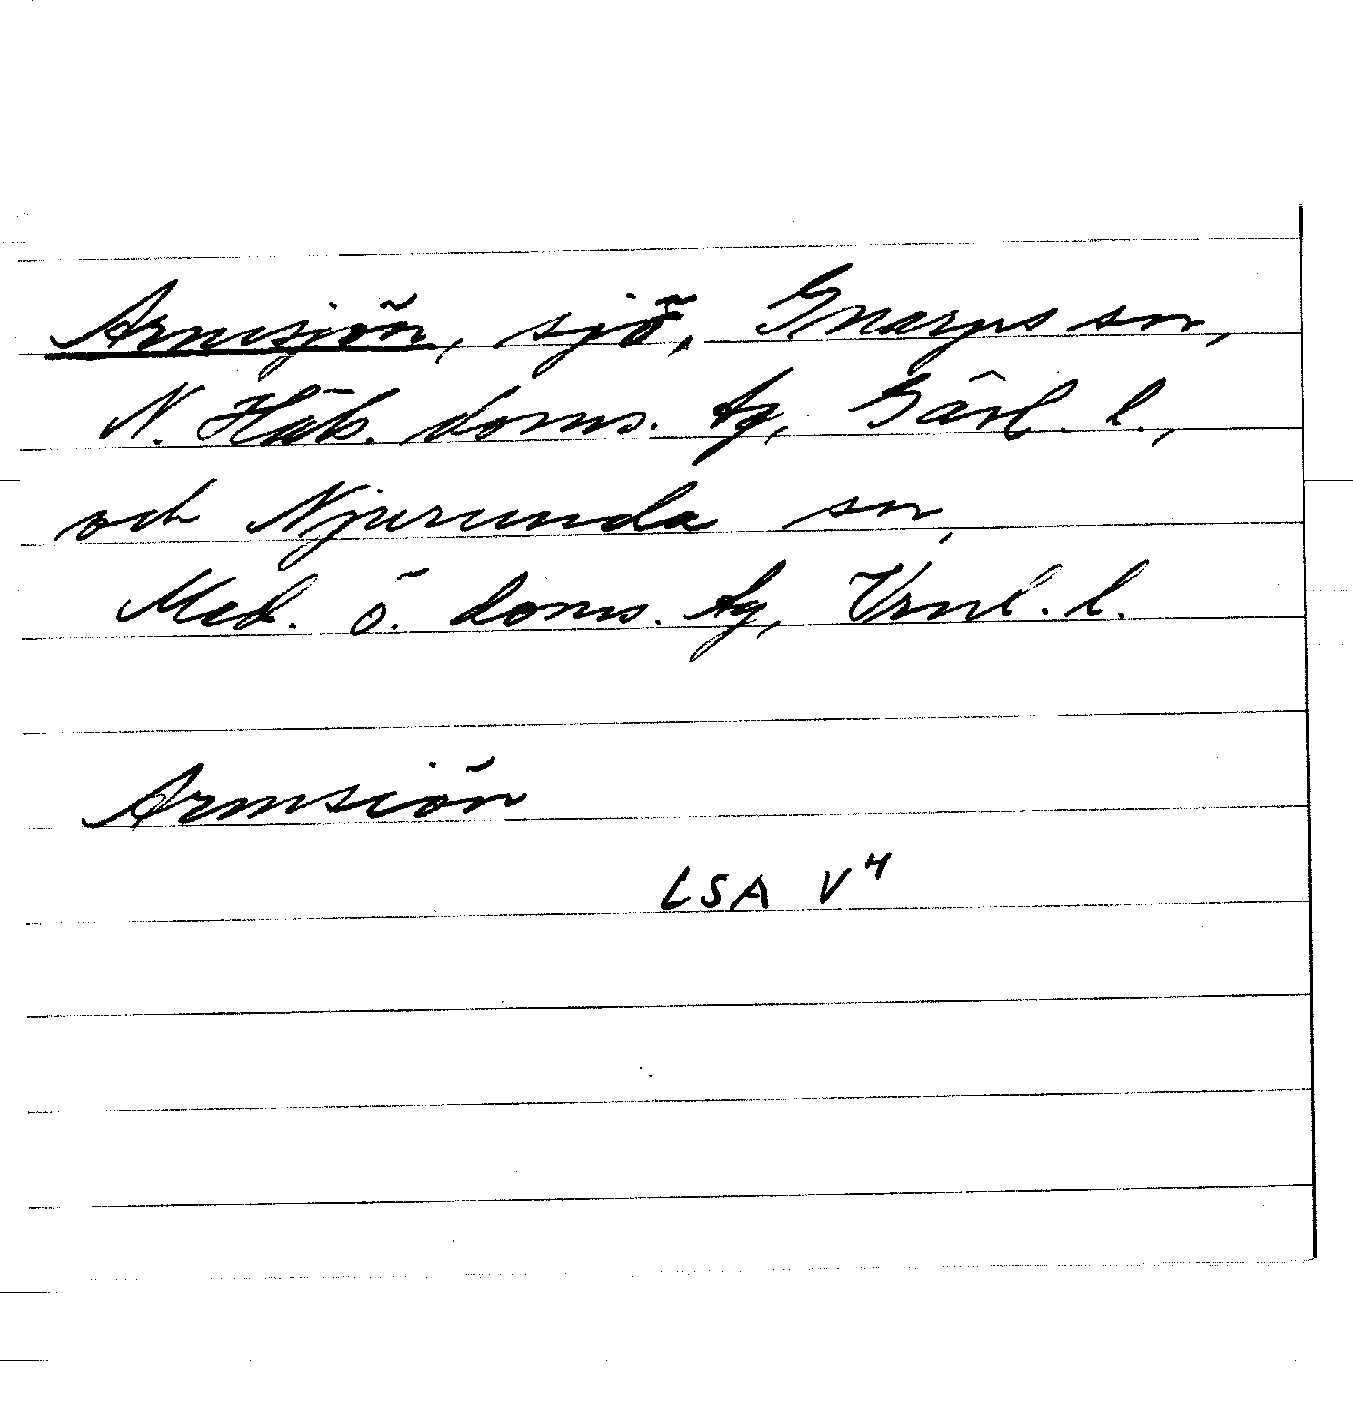 Armsjön, sjö, Gnarps sn,
N. Häls. doms. tg, Gävl. l.,
och Njurunda sn,
Med. ö. doms. tg, Vrnl. l.
Armsiön
LSA V4